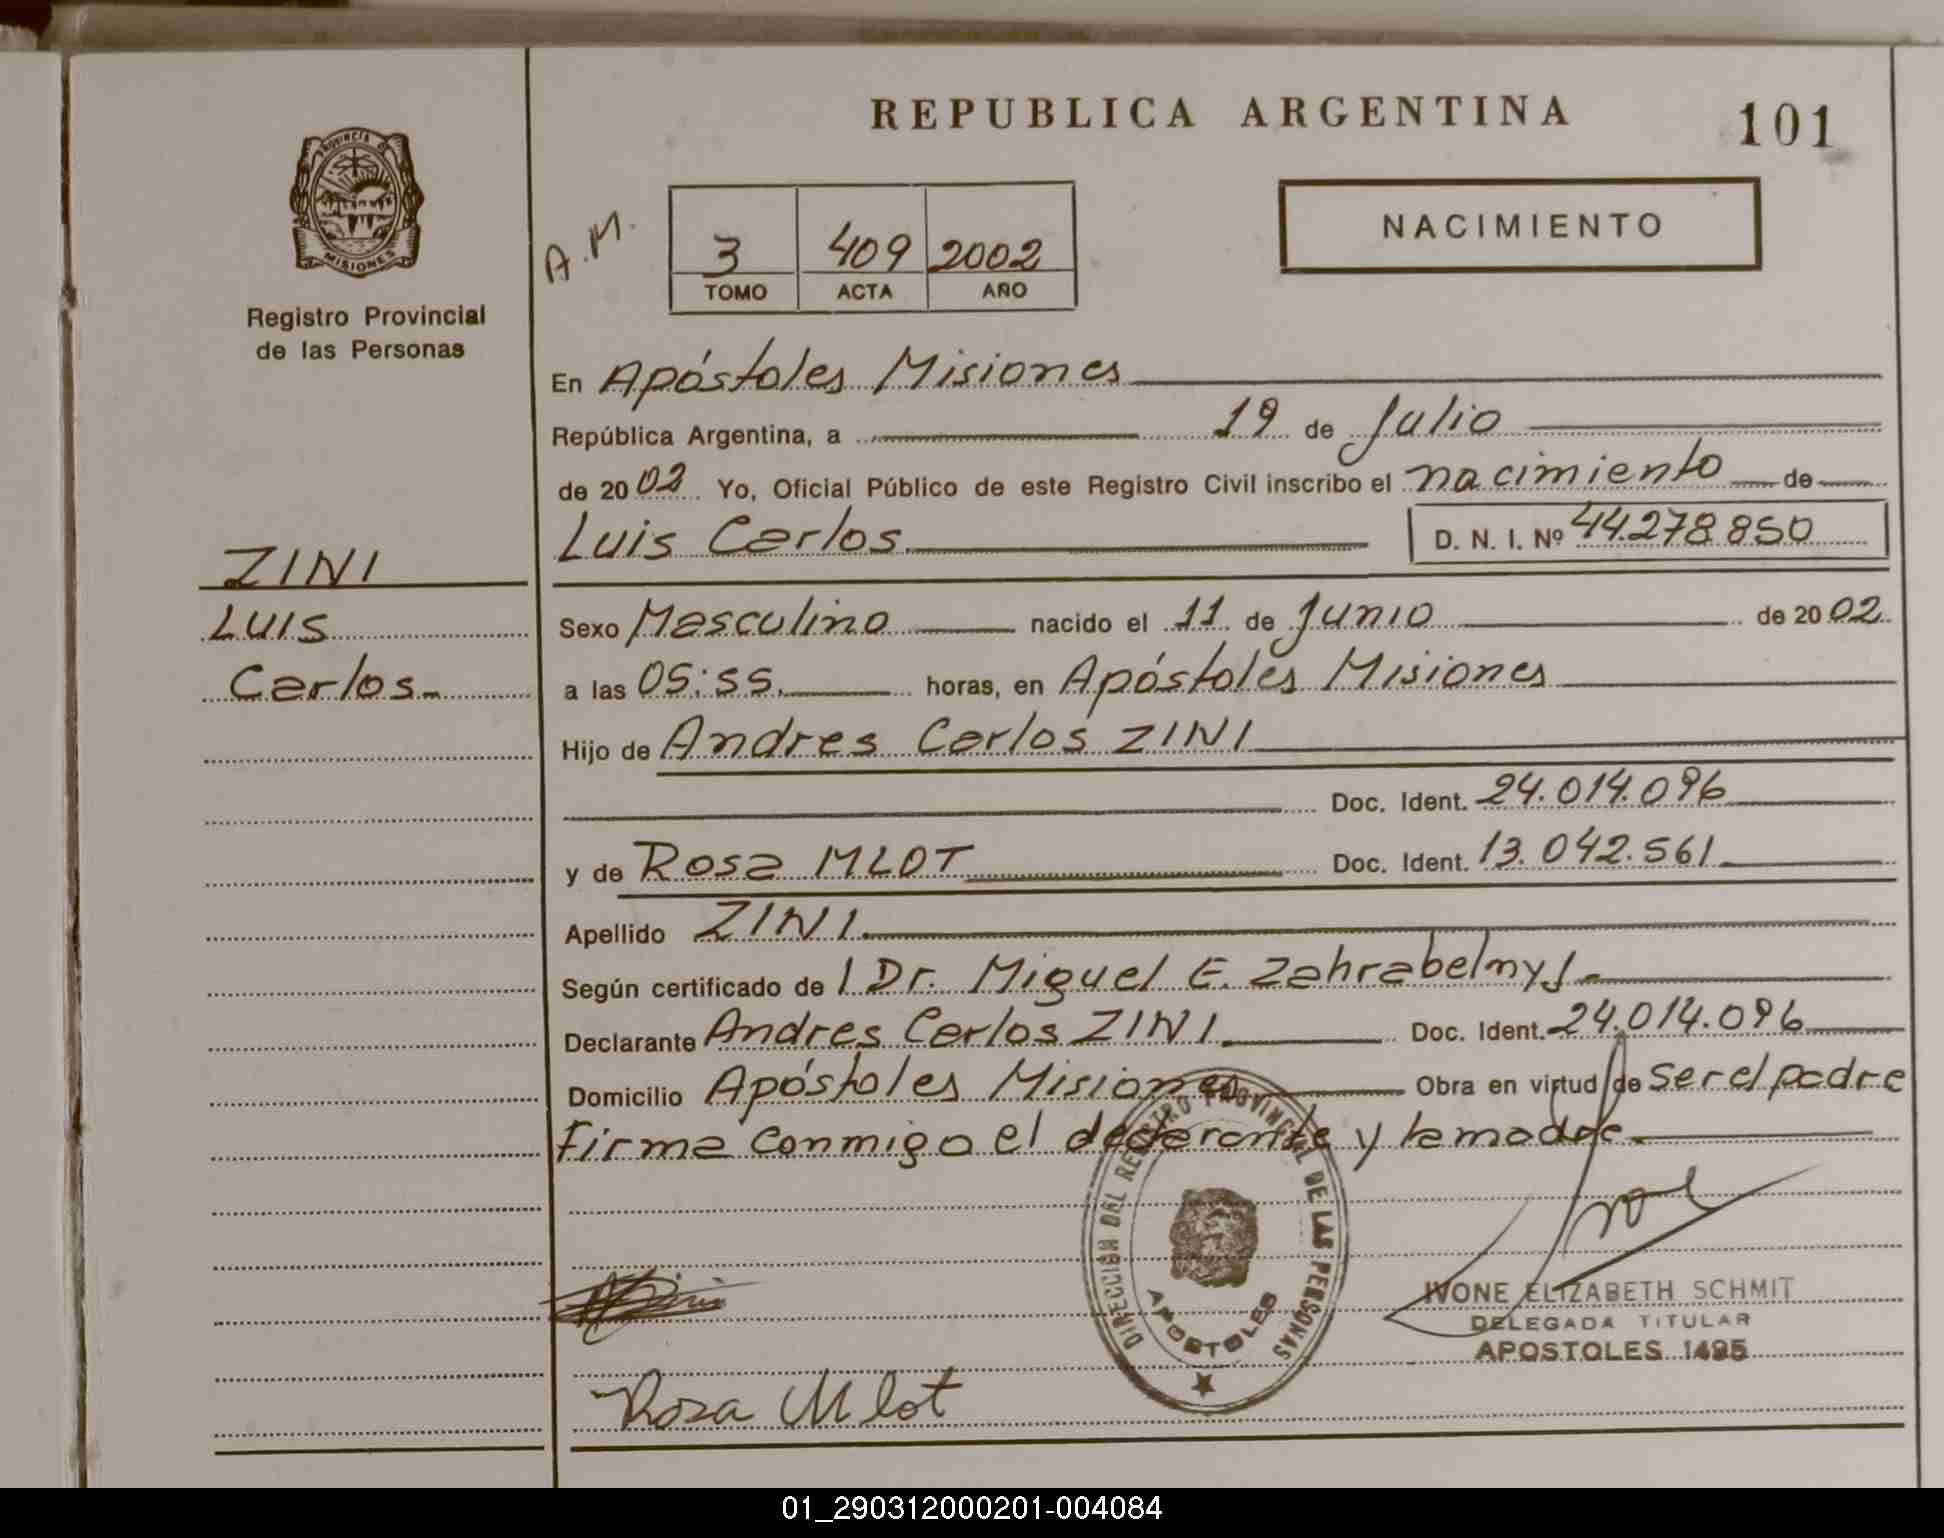 REPUBLICA ARGENTINA
101
PROVINCIA DE
MISIONES
Registro Provincial
de las Personas
A.M.
3 409 2002
TOMO ACTA AÑO
NACIMIENTO
En Apóstoles Misiones
República Argentina, a 19 de Julio
de 2002 Yo, Oficial Público de este Registro Civil inscribo el nacimiento de
Luis Carlos D. N. I. Nº 44.278.850
ZINI
LUIS
Carlos
Sexo Masculino nacido el 11 de Junio de 2002
a las 05:55. horas, en Apóstoles Misiones
Hijo de Andres Carlos ZINI
Doc. Ident. 24.014.096
y de Rosa MLOT Doc. Ident. 13.042.561
Apellido ZINI
Según certificado de / Dr. Miguel E. Zahrabelny/.
Declarante Andres Carlos ZINI Doc. Ident. 24.014.096
Domicilio Apóstoles Misiones Obra en virtud de ser el padre
Firma conmigo el declarante y la madre.
DIRECCION DEL REGISTRO PROVINCIAL DE LAS PERSONAS
APOSTOLES
IVONE ELIZABETH SCHMIT
DELEGADA TITULAR
APOSTOLES 1495
Rosa Mlot
01_290312000201-004084